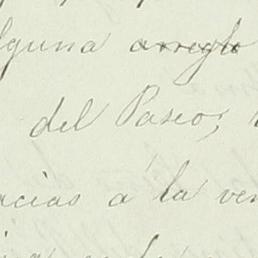 alguna arreglo
del Paseo,
acias a la ven